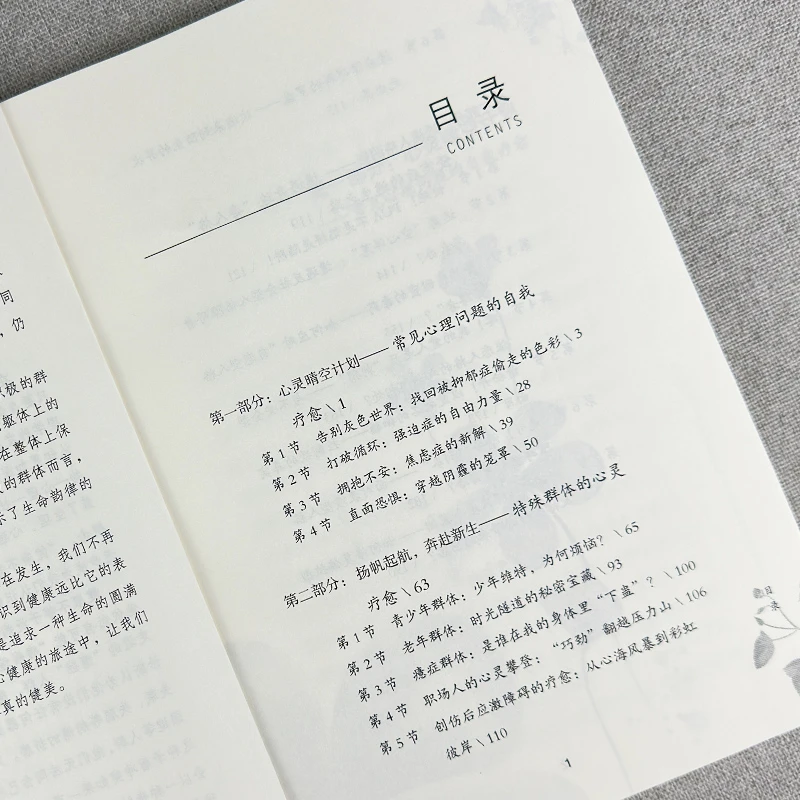 同
，仍
极的群
躯体上的
在整体上保
的群体而言，
示了生命韵律的
在发生，我们不再
识到健康远比它的表
是追求一种生命的圆满
心健康的旅途中，让我们
真的健美。
目录
CONTENTS
第一部分：心灵晴空计划——常见心理问题的自我
疗愈\1
第1节 告别灰色世界：找回被抑郁症偷走的色彩\3
第2节 打破循环：强迫症的自由力量\28
第3节 拥抱不安：焦虑症的新解\39
第4节 直面恐惧：穿越阴霾的笼罩\50
第二部分：扬帆起航，奔赴新生——特殊群体的心灵
疗愈\63
第1节 青少年群体：少年维特，为何烦恼？\65
第2节 老年群体：时光隧道的秘密宝藏\93
第3节 癔症群体：是谁在我的身体里“下蛊”？\100
第4节 职场人的心灵攀登：“巧劲”翻越压力山\106
第5节 创伤后应激障碍的疗愈：从心海风暴到彩虹
彼岸\110
目录
1